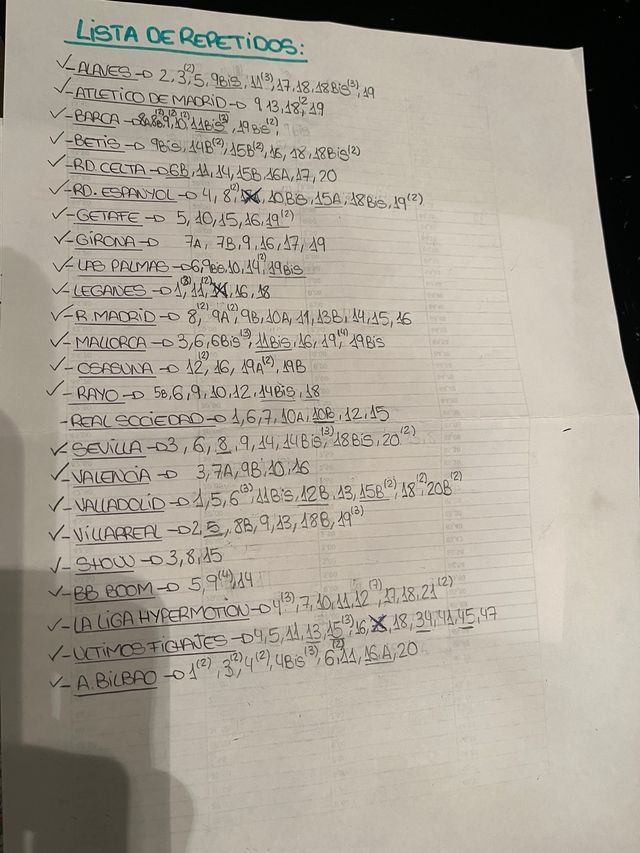 LISTA DE REPETIDOS:
✓-ALAVES → 2, 3⁽²⁾, 5, 9Bis, 11⁽³⁾, 17, 18, 18Bis⁽³⁾, 19
✓-ATLETICO DE MADRID → 9 13, 18,² 19
✓-BARCA → 8A, 8B⁽²⁾, 9⁽²⁾, 10⁽²⁾, 11Bis⁽³⁾, 19Bis⁽²⁾,
✓-BETIS → 9Bis, 14B⁽²⁾, 15B⁽²⁾, 16, 18, 18Bis⁽²⁾
✓-RD.CELTA → 6B, 11, 14, 15B, 16A, 17, 20
✓-RD. ESPANYOL → 4, 8⁽²⁾, 10Bis, 15A, 18Bis, 19⁽²⁾
✓-GETAFE → 5, 10, 15, 16, 19⁽²⁾
✓-GIRONA → 7A, 7B, 9, 16, 17, 19
✓-LAS PALMAS → 6, 9Bis, 10, 14⁽²⁾, 19Bis
✓-LEGANES → 1⁽³⁾, 11⁽²⁾, 16, 18
✓-R.MADRID → 8⁽²⁾, 9A⁽²⁾, 9B, 10A, 11, 13B, 14, 15, 16
✓-MALLORCA → 3, 6, 6Bis⁽³⁾, 11Bis, 16, 19⁽⁴⁾, 19Bis
✓-OSASUNA → 12⁽²⁾, 16, 19A⁽²⁾, 19B
✓-RAYO → 5B, 6, 9, 10, 12, 14Bis, 18
-REAL SOCIEDAD → 1, 6, 7, 10A, 10B, 12, 15
✓-SEVILLA → 3, 6, 8, 9, 14, 14Bis⁽³⁾, 18Bis, 20⁽²⁾
✓-VALENCIA → 3, 7A, 9B, 10, 16
✓-VALLADOLID → 1, 5, 6⁽³⁾, 11Bis, 12B, 13, 15B⁽²⁾, 18⁽²⁾, 20B⁽²⁾
✓-VILLARREAL → 2, 5, 8B, 9, 13, 18B, 19⁽³⁾
✓-SHOW → 3, 8, 15
✓-BB BOOM → 5, 9⁽⁴⁾, 14
✓-LA LIGA HYPERMOTION → 4⁽³⁾, 7, 10, 11, 12⁽⁷⁾, 17, 18, 21⁽²⁾
✓-ULTIMOS FICHAJES → 4, 5, 11, 13, 15⁽³⁾, 16, 18, 34, 41, 45, 47
✓-A.BILBAO → 1⁽²⁾, 3⁽²⁾, 4⁽²⁾, 4Bis⁽³⁾, 6⁽²⁾, 11, 16A, 20